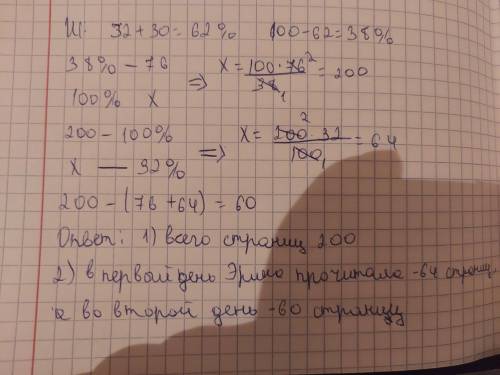 Ш: 32+30=62% 100-62=38%
38% - 76 => X = 100·76² / 38₁ = 200
100% X
200 - 100% => X = 200² · 32 / 100₁ = 64
X — 32%
200 - (76 + 64) = 60
Ответ: 1) всего страниц 200
2) в первый день прочитала -64 страниц
а во второй день -60 страниц